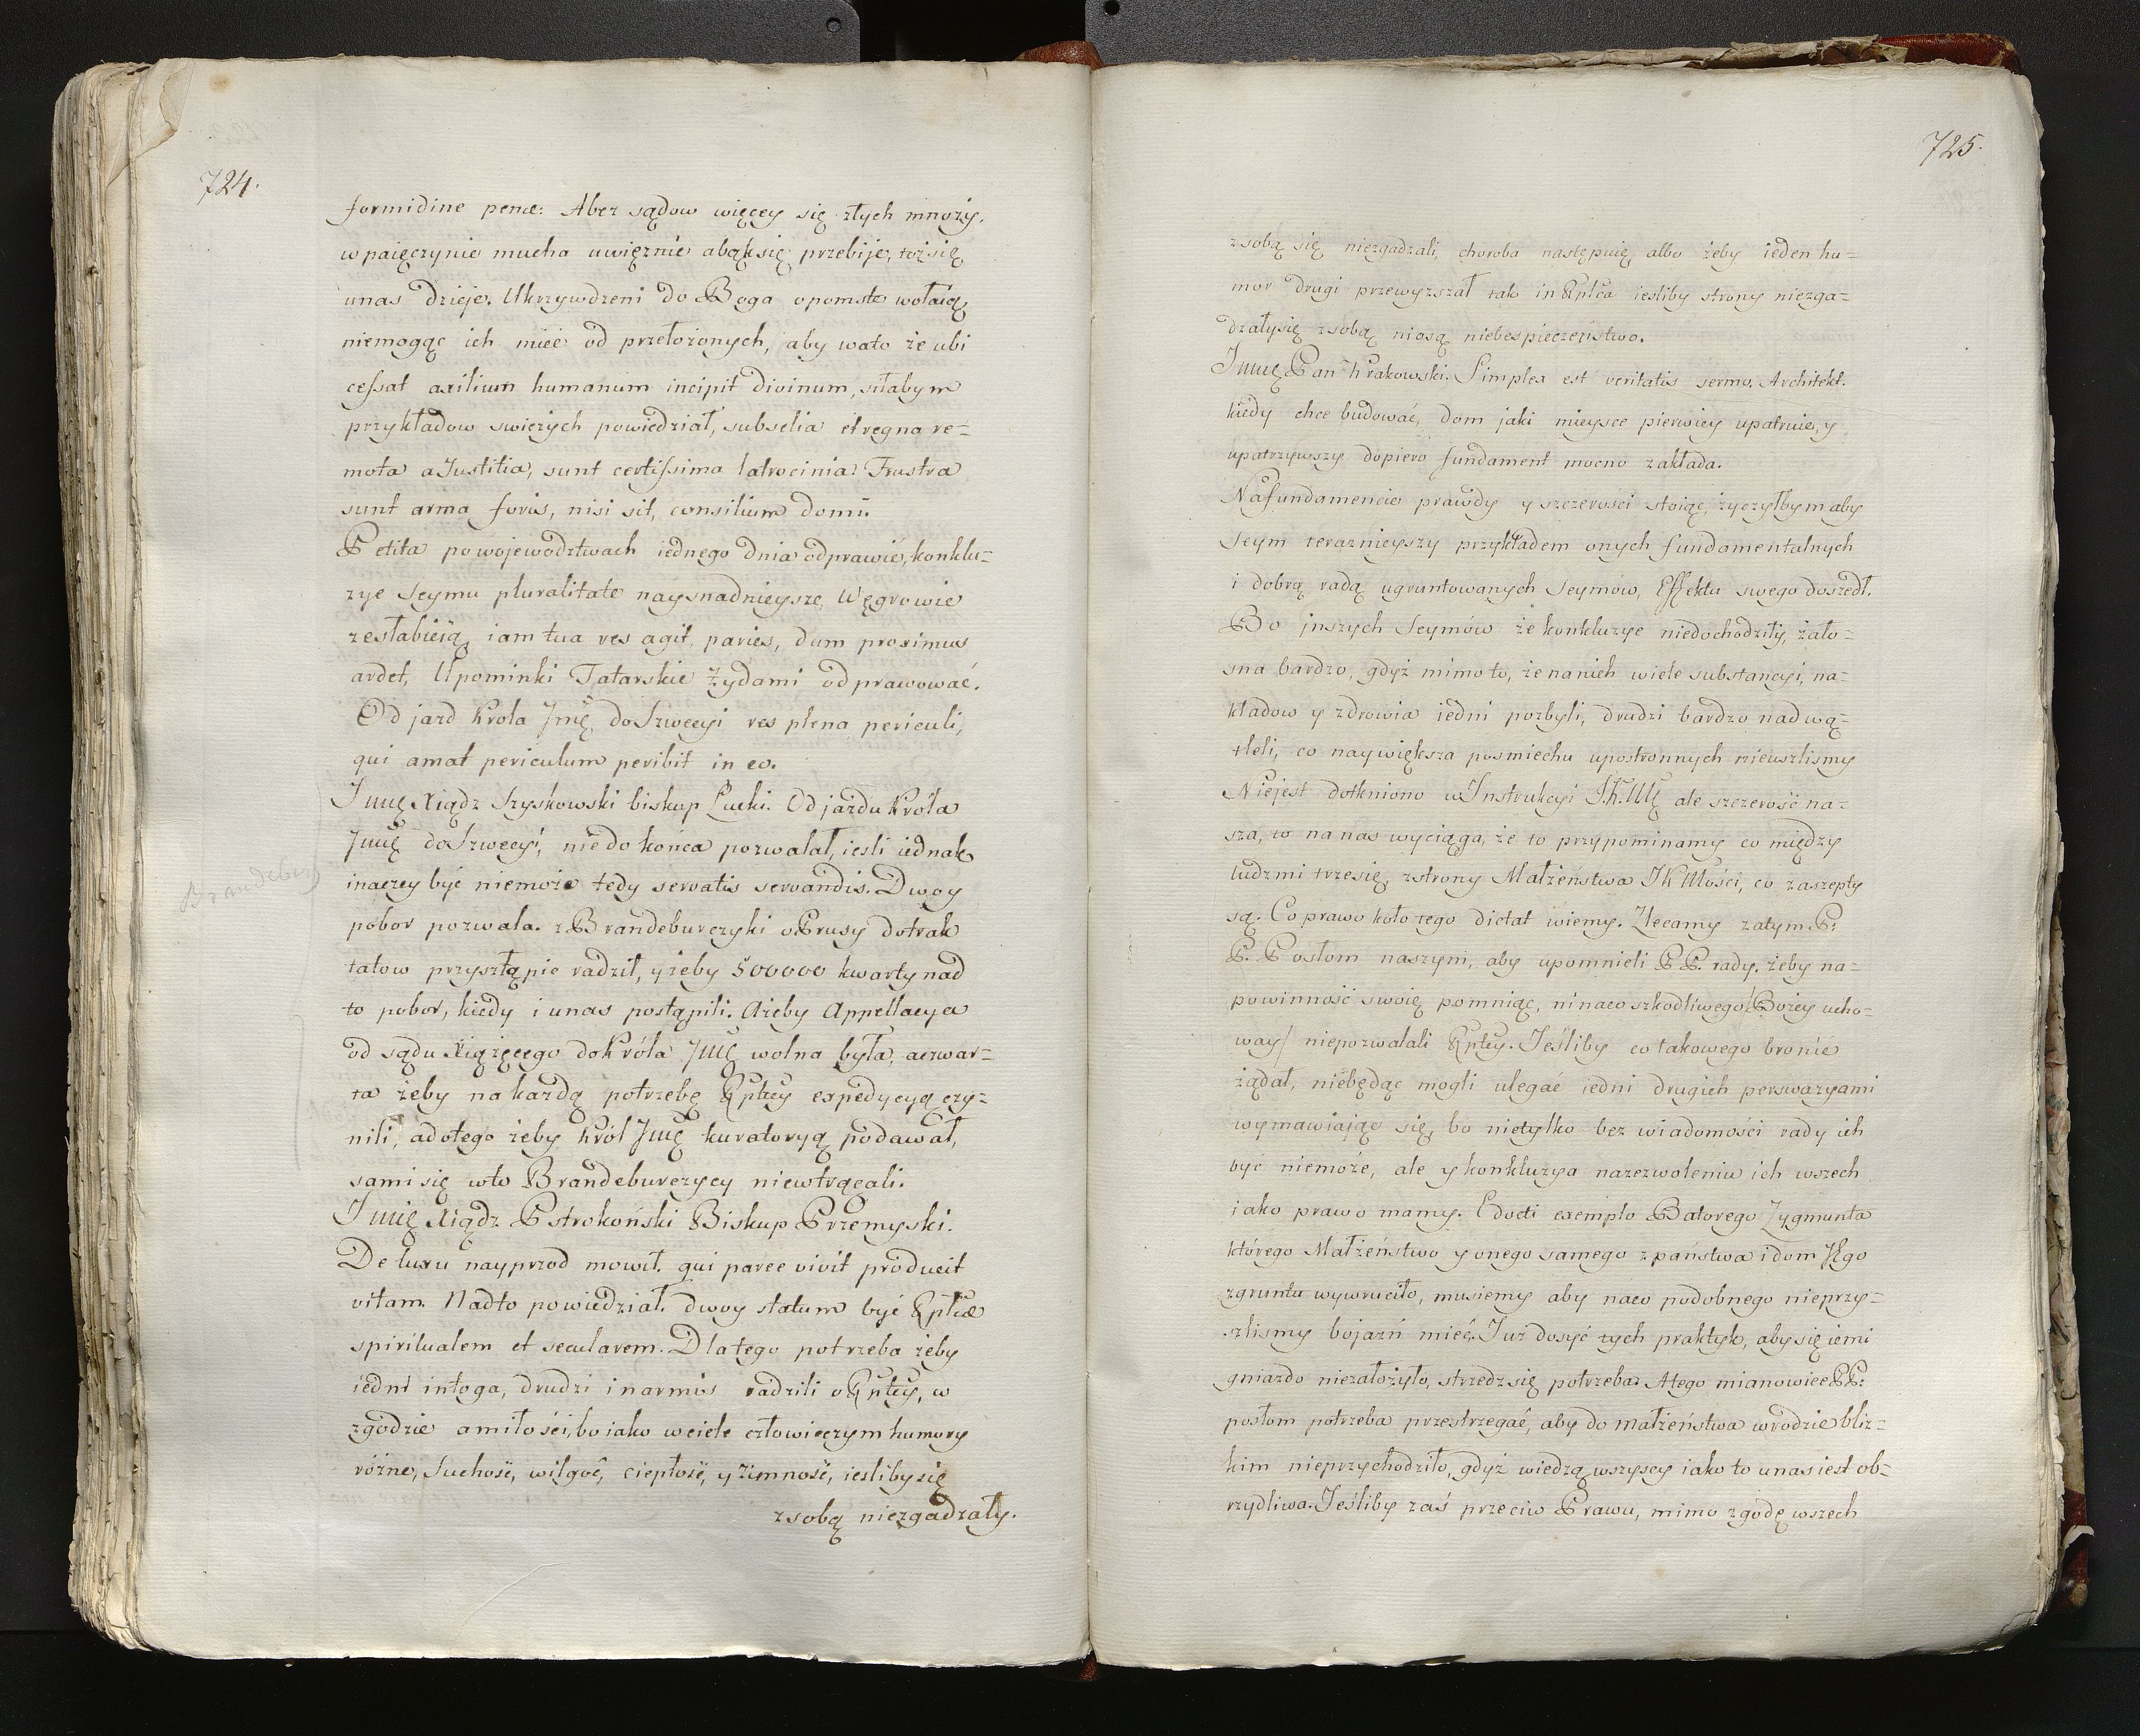 724.
formidine penæ: Abez sądow więcey się złych mnoży.
w paięczynie mucha uwięznie abąk się przebije, toż się
unas dzieje. Ukrzywdzeni do Boga o pomste wołaią
niemogąc ich mieć od przełożonych, aby wato że ubi
cessat axilium humanum incipit divinum, siłabym
przykładow swieżych powiedział, subselia et regna re=
mota a Justitia, sunt certissima latrocinia? Frustra
sunt arma foris, nisi sit, consilium domi.
Petita po wojewodztwach iednego dnia odprawić, konklu=
zye Seymu pluralitate naysnadnieysze, Węgrowie
zesłabieią, iam tua res agit, paries, dum proximus
ardet, Upominki Tatarskie Żydami odprawować.
Od jazd Krola Jmę do Szwecyi res plena periculi,
qui amat periculum peribit in eo.
Jmę Xiądz Szyskowski biskup Łucki. Od jazdu Króla
Jmę do Szwecyi, nie do końca pozwalał, iesli iednak
inaczey być niemoże tedy servatis servandis. Dwoy
pobor pozwala. z Brandeburczyki o Prusy dotrak
Brandebur
tatow przysztąpie radził, y żeby 500000 kwarty nad
to pobor, kiedy i unas postąpili. Ażeby Appellacya
od sądu Xiążęcego do Króla Jmę wolna była, aczwar=
ta żeby na każdą potrzebę Rptey expedycyą czy=
nili, adotego żeby Król Jmę kuratoryą podawał,
sami się wto Brandeburczycy niewtrącali.
Jmę Xiądz Pstrokoński Biskup Przemyski.
De luxu nayprzod mowił. qui parce vivit producit
vitam. Nadto powiedział. dwoy statum być Rptcæ
spiritualem et secularem. Dla tego potrzeba żeby
iedni in toga, drudzi in armis radzili o Rptey, w
zgodzie a miłości, bo iako w ciele człowieczym humory
różne, Suchość, wilgoć, ciepłość, y zimność, iesliby się
zsobą niezgadzały.
725.
zsobą się niezgadzali, choroba następuię, albo żeby ieden hu=
mor drugi przewyzszał tak in Rptca iesliby strony niezga=
dzały się zsobą niosą niebespieczeństwo.
Jmę Pan Krakowski. Simplex est veritatis sermo. Architekt.
kiedy chce budować, dom jaki mieysce pierwiey upatruie, y
upatrzywszy dopiero fundament mocno zakłada.
Na fundamencie prawdy y szczerości stoiąc, życzyłbym aby
Seym teraznieyszy przykładem onych fundamentalnych
i dobrą radą ugruntowanych Seymów, Effektu swego doszedł.
Bo jnszych Seymów że konkluzye niedochodziły, żało=
sna bardzo, gdyż mimo to, że na nich wiele substancyi, na=
kładow y zdrowia iedni pozbyli, drudzi bardzo nadwą=
tleli, co naywiększa posmiechu upostronnych nieuszlismy
Niejest dotkniono w Instrukcyi J.K.Mę ale szczerość na=
sza, to na nas wyciąga, że to przypominamy co między
ludzmi trzesię, zstrony Małżeństwa JK Mości, co zaszepty
są. Co prawo koło tego dictat wiemy. Zlecamy zatym P:
P. Posłom naszym, aby upomnieli P.P. rady, żeby na=
powinność swoię pomniąc, ninaco szkodliwego / Bożey ucho=
way/ niepozwalali Rptey. Jeśliby co takowego bronie
żądał, niebędąc mogli ulegać iedni drugich perswazyami
wymawiając się, bo nietylko bez wiadomości rady ich
być niemoże, ale y konkluzya nazezwoleniu ich wszech
iako prawo mamy. Edocti exemplo Batorego Zygmunta
którego Małżeństwo y onego samego z państwa i dom Jego
zgruntu wywruciło, musiemy aby naco podobnego nieprzy=
szlismy bojaźń mieć. Już dosyć tych praktyk, aby się iemi
gniazdo niezałożyło, strzedz się potrzeba? A tego mianowice PP:
posłom potrzeba przestrzegać, aby do małżeństwa wrodzie bliz=
kim nieprzychodziło, gdyż wiedzą wszyscy iako to unas iest ob=
rzydliwa. Jeśliby zaś przeciw Prawu, mimo zgodę wszech